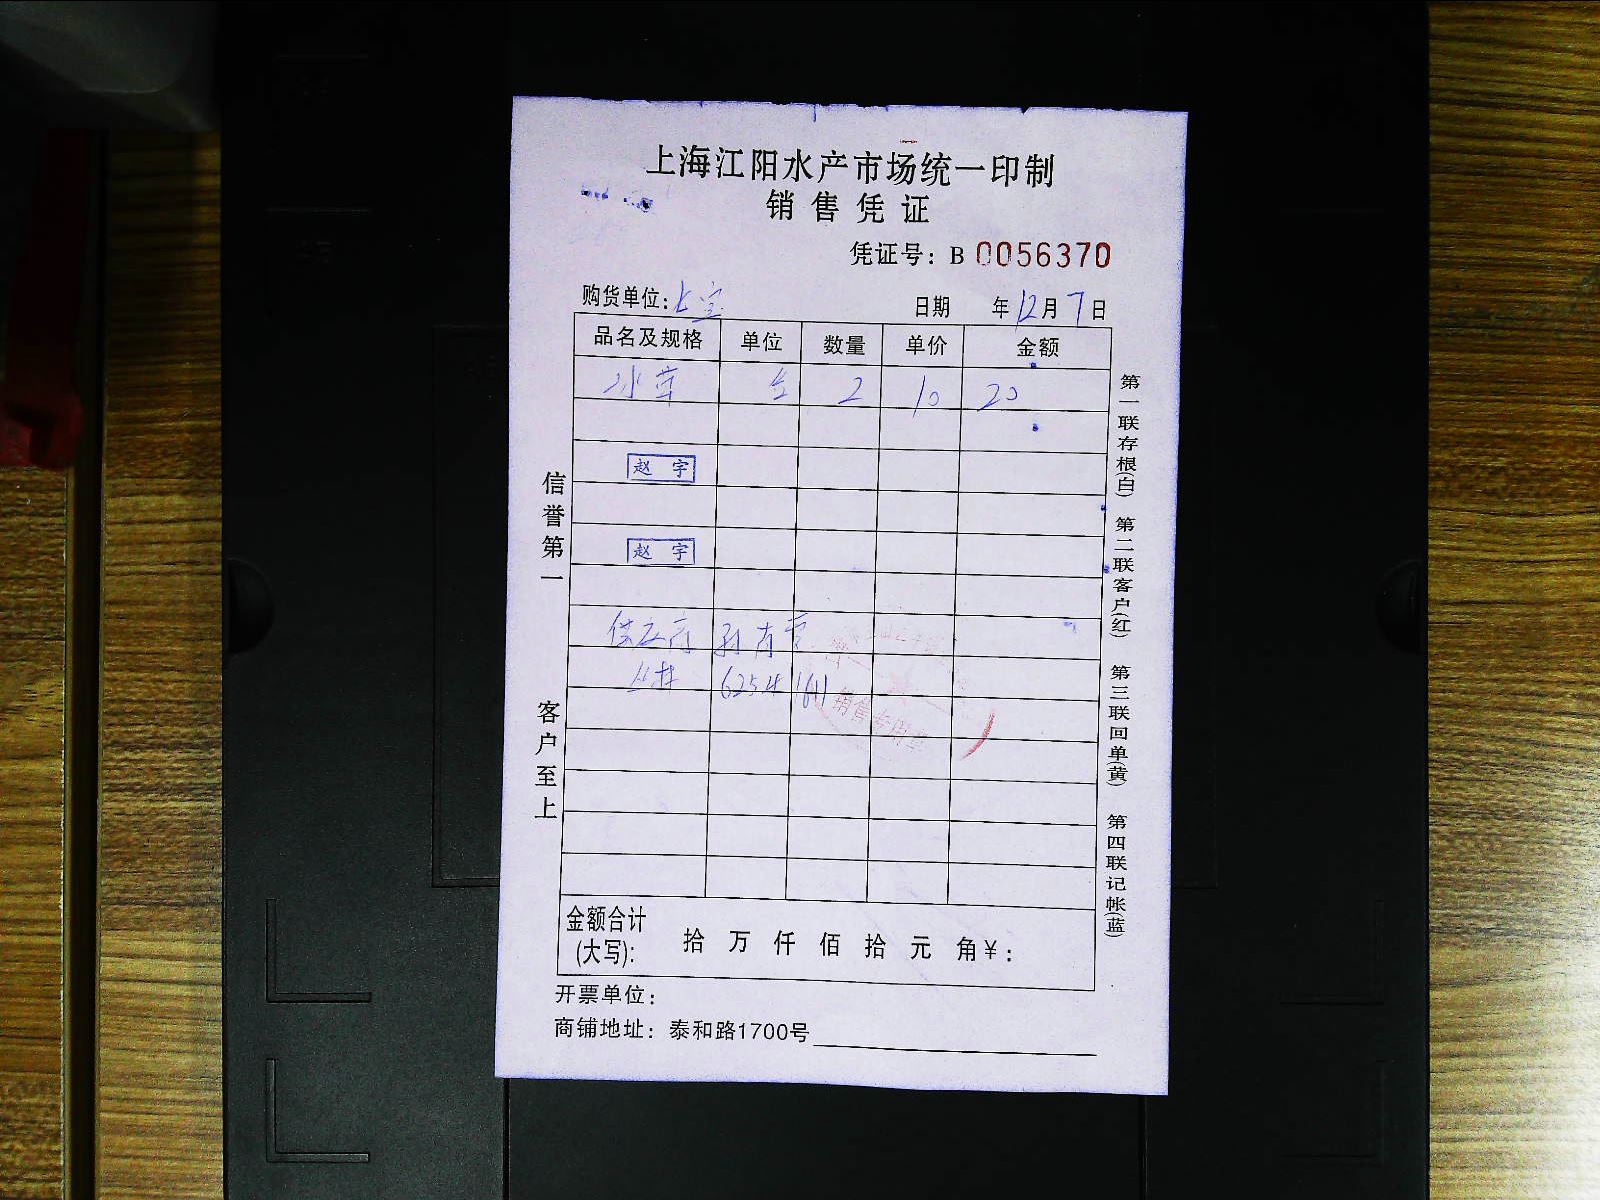 上海江阳水产市场统一印制
销售凭证
凭证号：B 0056370
购货单位： 日期 年12月7日
品名及规格 单位 数量 单价 金额
2 10 20
赵 宇
赵 宇
供应商
销售专用章
信誉第一
客户至上
第一联存根(白)
第二联客户(红)
第三联回单(黄)
第四联记帐(蓝)
金额合计
(大写)： 拾 万 仟 佰 拾 元 角￥：
开票单位：
商铺地址：泰和路1700号